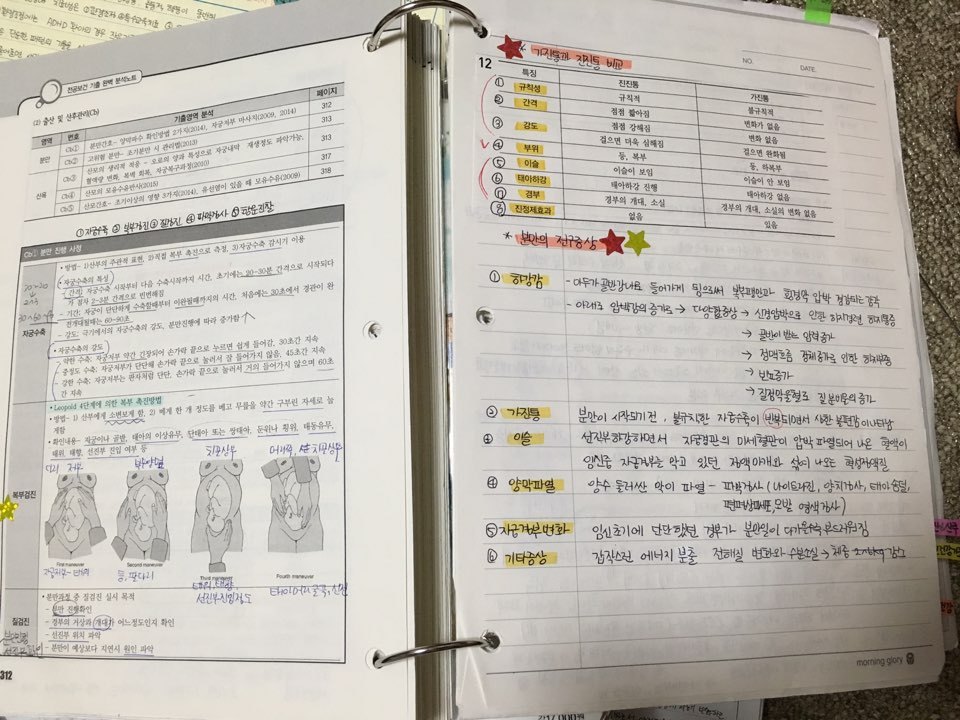 전공보건 기출 완벽 분석노트
(2) 출산 및 산후관리(Cb)
영역 번호 기출영역 분석 페이지
분만 Cb① 분만간호- 양막파수 확인방법 2가지(2014), 자궁저부 마사지(2009, 2014) 312
Cb② 고위험 분만- 초기분만 시 관리법(2013) 313
산욕 Cb③ 산모의 생리적 적응 - 오로의 양과 특성으로 자궁내막 재생정도 파악가능, 313
혈액량 변화, 복벽 회복, 자궁복구과정(2010)
Cb④ 산모의 모유수유반사(2015) 317
Cb⑤ 산모간호- 초기이상의 영향 3가지(2014), 유선염이 있을 때 모유수유(2009) 318
① 자궁수축 ② 복부검진 ③ 질검진 ④ 파막검사
Cb① 분만 진행 사정
자궁수축
• 방법- 1)산부의 주관적 표현, 2)직접 복부 촉진으로 측정, 3)자궁수축 감시기 이용
자궁수축의 특성
- 간격: 자궁수축 시작부터 다음 수축시작까지 시간, 초기에는 20-30분 간격으로 시작되다
가 점차 2-3분 간격으로 빈번해짐
- 기간: 자궁이 단단하게 수축할때부터 이완될때까지의 시간, 처음에는 30초에서 경관이 완
전개대될때는 60-90초
- 강도: 극기에서의 자궁수축의 강도, 분만진행에 따라 증가함
• 자궁수축의 강도
- 약한 수축: 자궁저부 약간 긴장되어 손가락 끝으로 누르면 쉽게 들어감, 30초간 지속
- 중정도 수축: 자궁저부가 단단해 손가락 끝으로 눌러서 잘 들어가지 않음, 45초간 지속
- 강한 수축: 자궁저부는 판자처럼 단단, 손가락 끝으로 눌러서 거의 들어가지 않으며 60초
간 지속
복부검진
• Leopold 4단계에 의한 복부 촉진방법
- 방법- 1) 산부에게 소변보게 함, 2) 베게 한 개 정도를 베고 무릎을 약간 구부린 자세로 눕
게함
• 확인내용- 자궁이나 골반, 태아의 이상유무, 단태아 또는 쌍태아, 둔위나 횡위, 태동유무,
태위, 태향, 선진부 진입 여부 등
First maneuver Second maneuver Third maneuver Fourth maneuver
등, 팔다리
선진부진입정도
질검진
• 분만과정 중 질검진 실시 목적
- 분만 진행확인
- 경부의 거상과 개대가 어느정도인지 확인
- 선진부 위치 파악
- 분만이 예상보다 지연시 원인 파악
312
NO. DATE.
* 가진통과 진진통 비교
12
특징 진진통 가진통
① 규칙성 규칙적 불규칙적
② 간격 점점 짧아짐 변화가 없음
③ 강도 점점 강해짐 변화 없음
걸으면 더욱 심해짐 걸으면 완화됨
④ 부위 등, 복부 등, 하복부
⑤ 이슬 이슬이 보임 이슬이 안 보임
⑥ 태아하강 태아하강 진행 태아하강 없음
⑦ 경부 경부의 개대, 소실 경부의 개대, 소실의 변화 없음
⑧ 진정제효과 없음 있음
* 분만의 전구증상
① 하강감 - 아두가 골반강내로 들어가게 됨으로써 복부팽만과 횡격막 압박 경감되는 경우
- 아래로 압박감이 증가 → 다양한 증상 → 신경압박으로 인한 하지경련 하지통증
→ 골반이 받는 압력증가
→ 정맥흐름 정체증가로 인한 하지부종
→ 빈뇨증가
→ 질점막울혈로 질 분비물의 증가
② 가진통 분만이 시작되기전, 불규칙한 자궁수축이 반복되면서 심한 불편감이 나타남
이슬 선진부하강하면서 자궁경관의 미세혈관이 압박 파열되어 나온 혈액이
임신중 자궁경부를 막고 있던 점액마개와 섞여 나오는 혈성점액질
④ 양막파열 양수 둘러싼 막이 파열 - 파막검사 (나이트라진, 양치검사, 태아솜털,
⑤ 자궁경부변화 임신초기에 단단했던 경부가 분만일이 다가올수록 부드러워짐
⑥ 기타증상 갑작스런 에너지 분출 전해질 변화와 수분소실 → 체중 감소
morning glory